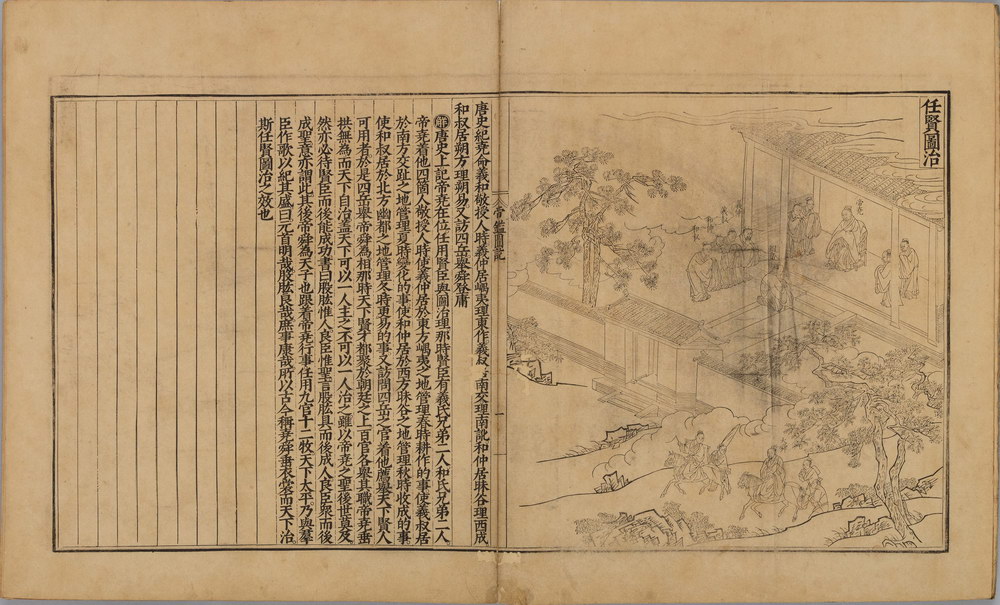 任賢圖治
帝堯
唐史紀堯命羲和敬授人時羲仲居嵎夷理東作羲叔南交理南訛和仲居昧谷理西成
和叔居朔方理朔易又訪四岳舉舜登庸
解唐史上記帝堯在位任用賢臣與圖治理那時賢臣有羲氏兄弟二人和氏兄弟二人
帝堯着他四箇人敬授人時使羲仲居於東方嵎夷之地管理春時耕作的事使羲叔居
於南方交趾之地管理夏時變化的事使和仲居於西方昧谷之地管理秋時收成的事
使和叔居於北方幽都之地管理冬時更易的事又訪問四岳之官着他薦舉天下賢人
可用者於是四岳舉帝舜為相那時天下賢才都聚於朝廷之上百官各舉其職帝堯垂
拱無為而天下自治蓋天下可以一人主之不可以一人治之雖以帝堯之聖後世莫及
然亦必待賢臣而後能成功書曰股肱惟人良臣惟聖言股肱具而後成人良臣眾而後
成聖意亦謂此其後帝舜為天子也跟着帝堯行事任用九官十二牧天下太平乃與羣
臣作歌以紀其盛曰元首明哉股肱良哉庶事康哉所以古今稱堯舜垂衣裳而天下治
斯任賢圖治之效也
帝鑑圖說
一